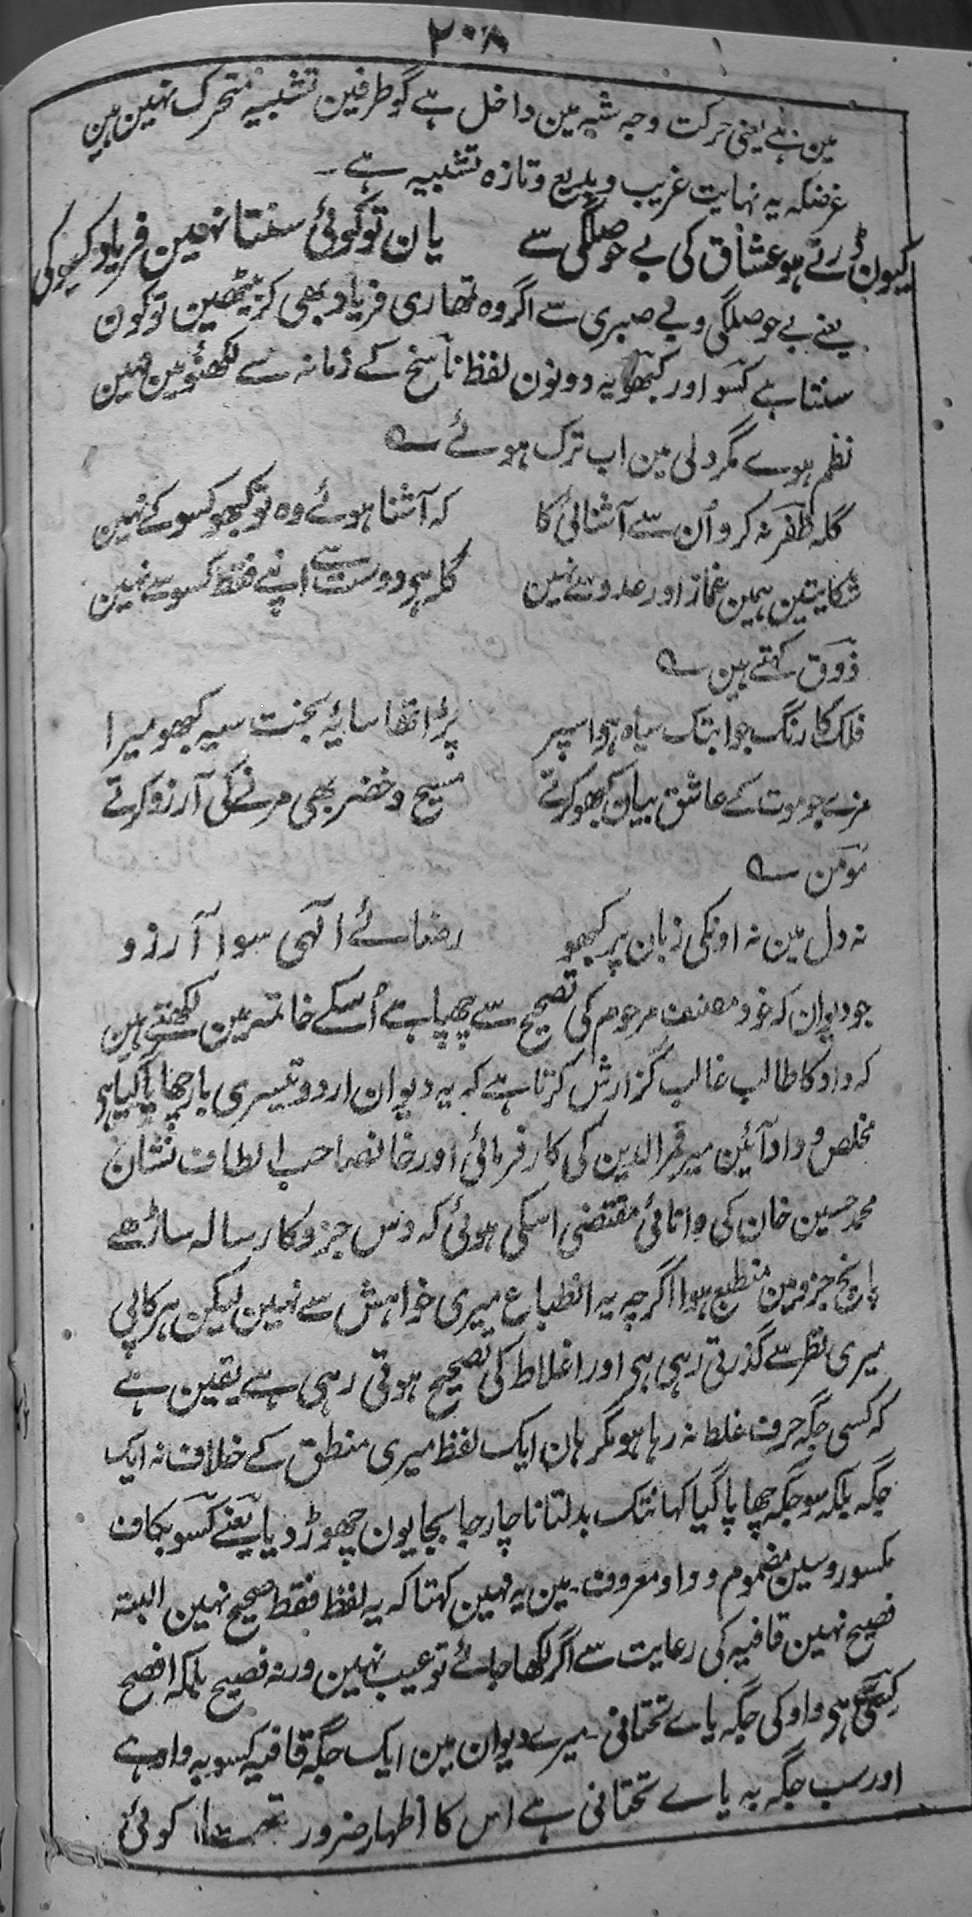 ۲۰۸
مین ہے یعنی حرکت وجہ شبہ مین داخل ہے گو طرفین تشبیہ متحرک نہین ہین
غرضکہ یہ نہایت غریب و بدیع و تازہ تشبیہ ہے ۔
کیون ڈرتے ہو عشاق کی بے حوصلگی سے یان تو کوئی سنتا نہین فریاد کسو کی
یعنے بے حوصلگی و بے صبری سے اگر وہ تمھاری فریاد بھی کر بیٹھین تو کون
سنتا ہے کسو اور کبھو یہ دونون لفظ ناسخ کے زمانہ سے لکھنؤ مین نہین
نظم ہوے مگر دلی مین اب ترک ہوئے ؎
گلہ ظفر نہ کرو اُن سے آشنائی کا کہ آشنا ہوئے وہ تو کبھو کسو کے نہین
شکایتین ہمین غماز اور عدو سے نہین گلہ ہو دوست سے اپنے فقط کسو سے نہین
ذوق کہتے ہین ؎
فلک کا رنگ جو ابتک سیاہ ہو اسپر پڑا تھا سایۂ بخت سیہ کبھو میرا
مزے جو موت کے عاشق بیان کبھو کرتے مسیح و خضر بھی مرنے کی آرزو کرتے
مومن ؎
نہ دل مین نہ اونکی زبان پر کبھو رضائے الٰہی سوا آرزو
جو دیوان کہ خود مصنف مرحوم کی تصحیح سے چھپا ہے اُسکے خاتمہ مین لکھتے ہین
کہ داد کا طالب غالب گزارش کرتا ہے کہ یہ دیوان اردو تیسری بار چھاپا گیا ہو
مخلص وداد آئین میر قمرالدین کی کارفرمائی اور خانصاحب الطاف نشان
محمد حسین خان کی دانائی مقتضی اسکی ہوئی کہ دس جزو کا رسالہ ساڑھے
پانچ جزو مین منطبع ہوا اگرچہ یہ انطباع میری خواہش سے نہین لیکن ہر کاپی
میری نظر سے گذرتی رہی ہی اور اغلاط کی تصحیح ہوتی رہی ہے یقین ہے
کہ کسی جگہ حرف غلط نہ رہا ہو مگر ہان ایک لفظ میری منطق کے خلاف نہ ایک
جگہ بلکہ سو جگہ چھاپا گیا کہانتک بدلتا ناچار جا بجا یون چھوڑ دیا یعنے کسو بکاف
مکسور و سین مضموم و واو معروف ۔ مین یہ نہین کہتا کہ یہ لفظ فقط صحیح نہین البتہ
فصیح نہین قافیہ کی رعایت سے اگر لکھا جائے تو عیب نہین ورنہ فصیح بلکہ افصح
کسی ہی واو کی جگہ یاے تحتانی ۔ میرے دیوان مین ایک جگہ قافیہ کسو بہ واو ہے
اور سب جگہ بہ یاے تحتانی ہے اس کا اظہار ضرور تھا کوئی